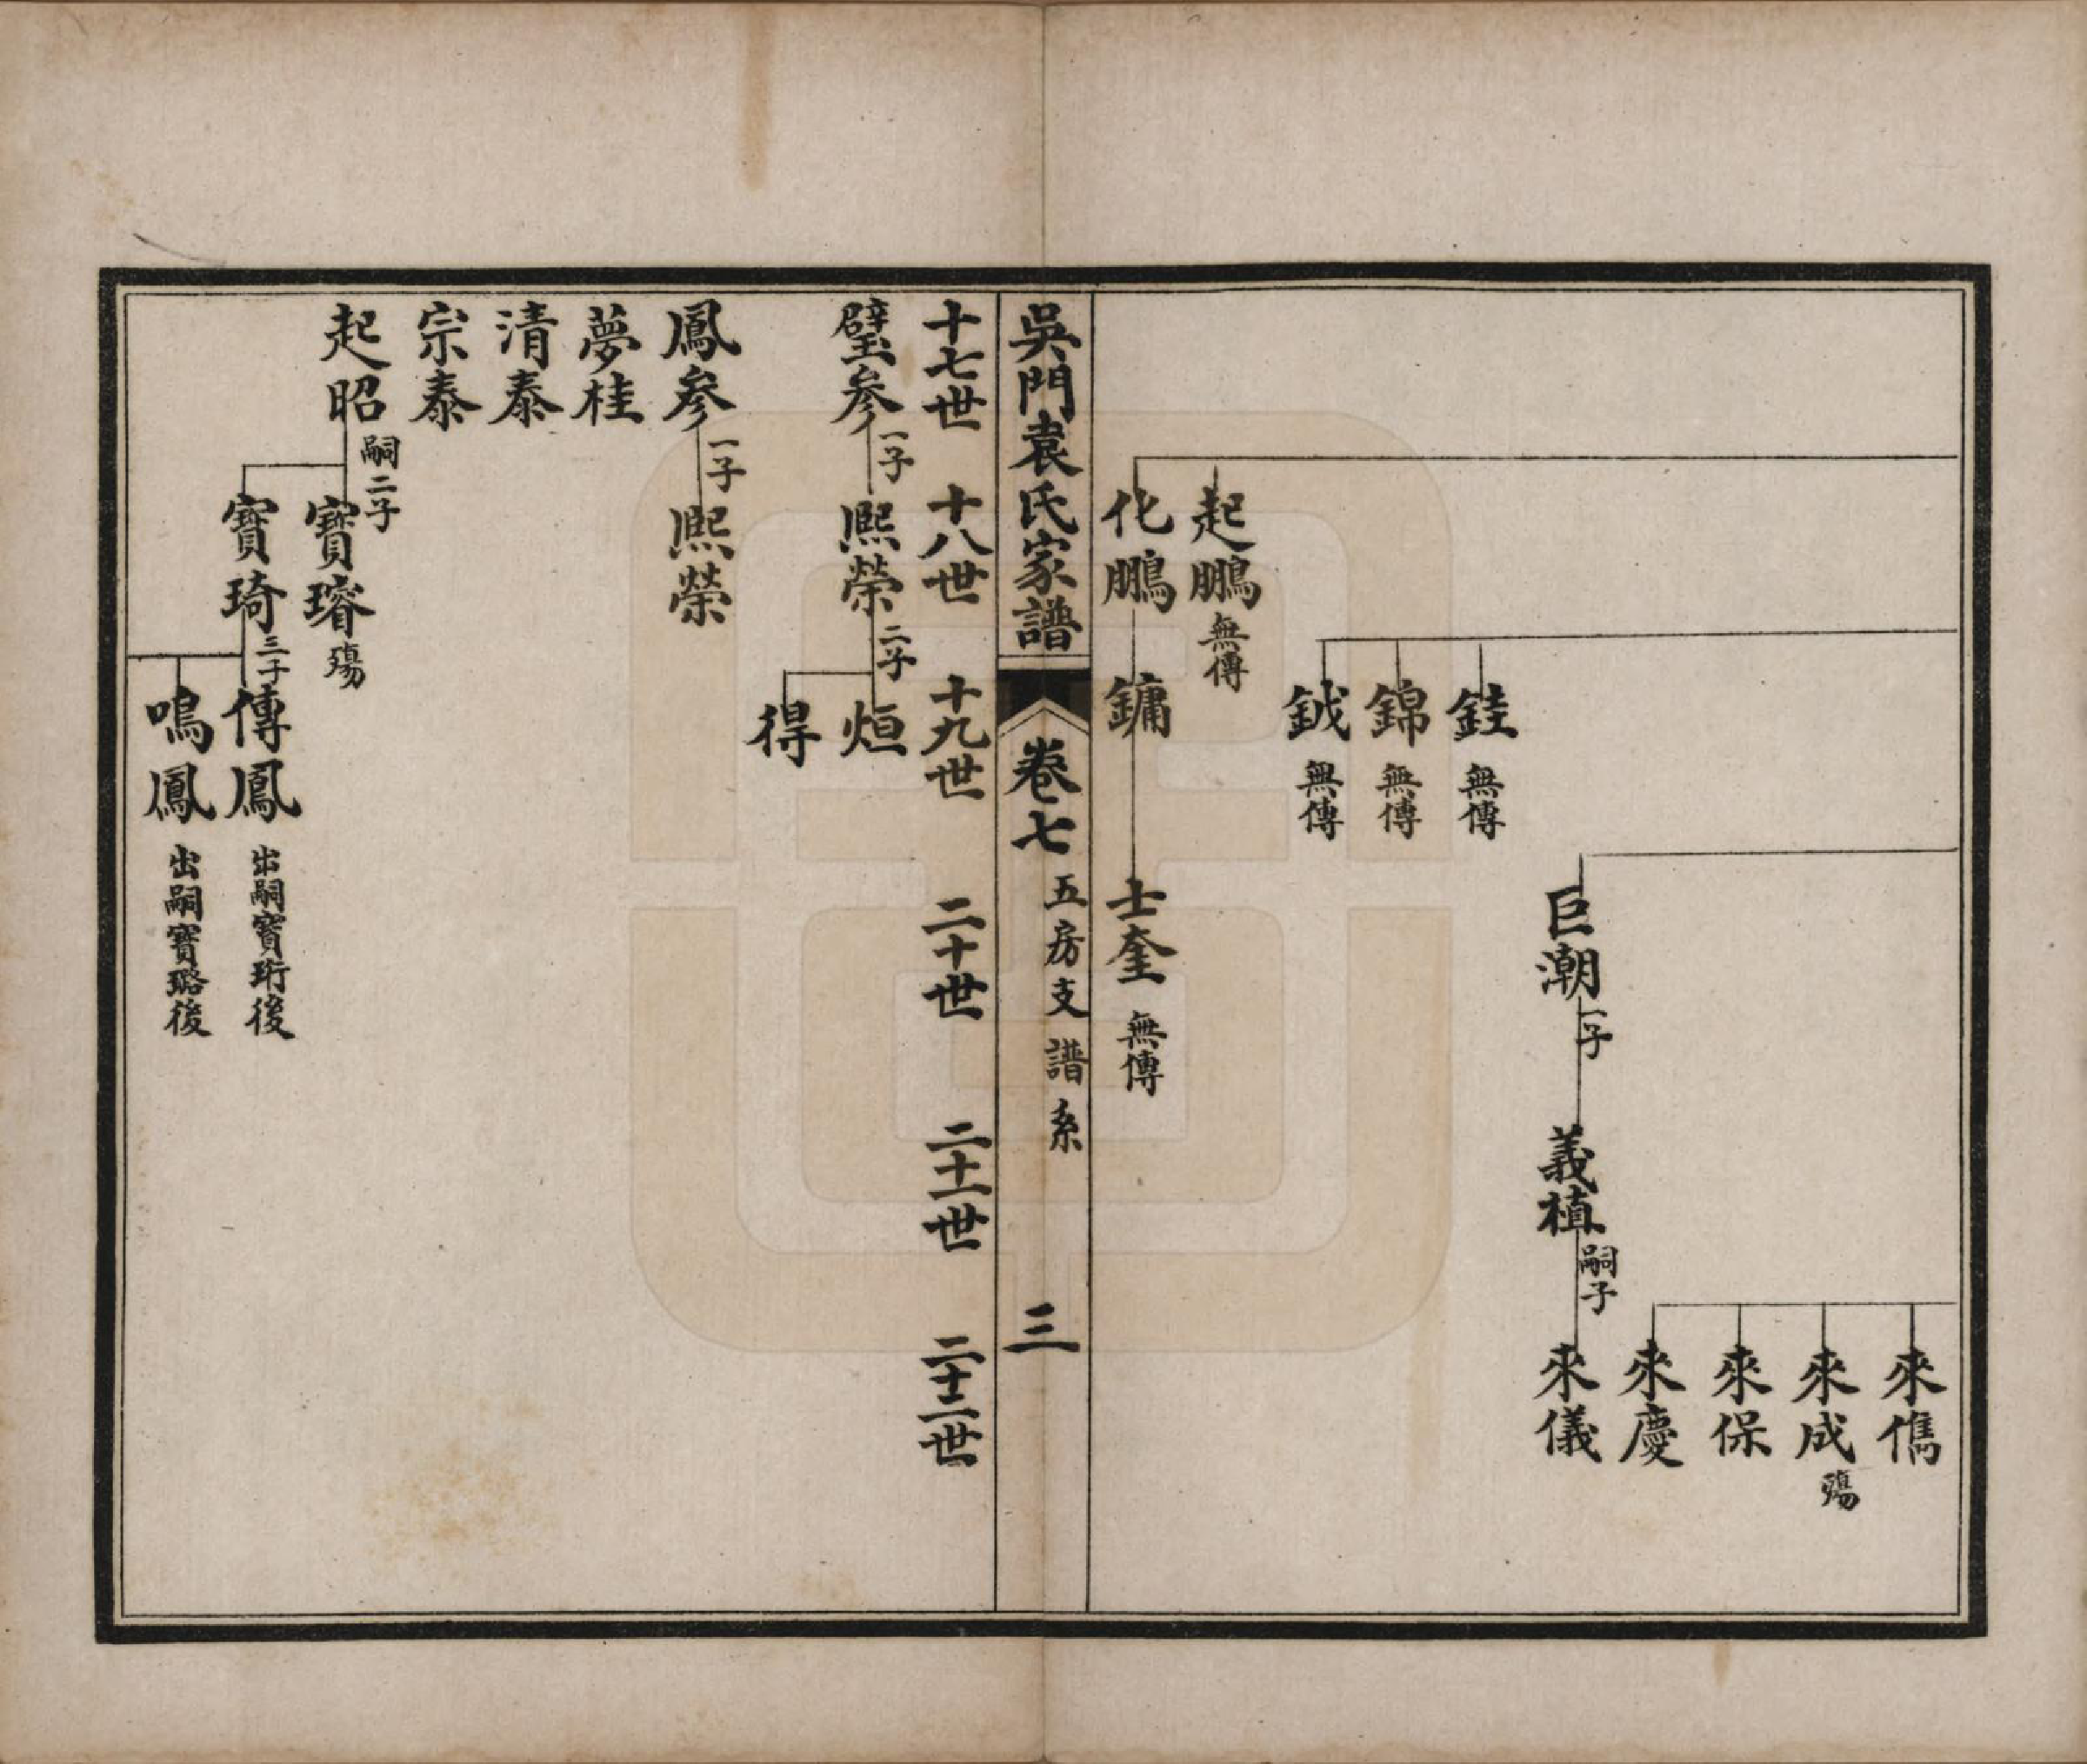 來儁
來成 殤
來保
來慶
巨潮 一子 義植 嗣子 來儀
銈 無傳
錦 無傳
鉞 無傳
起鵬 無傳
化鵬 鏞 士奎 無傳
吳門袁氏家譜 卷七 五房支譜系 三
十七世 十八世 十九世 二十世 二十一世 二十二世
璧參 一子 熙榮 二子 烜
得
鳳參 一子 熙榮
夢桂
清泰
宗泰
起昭 嗣二子 寶璿 殤
寶琦 三子 傳鳳 出嗣寶珩後
鳴鳳 出嗣寶璐後